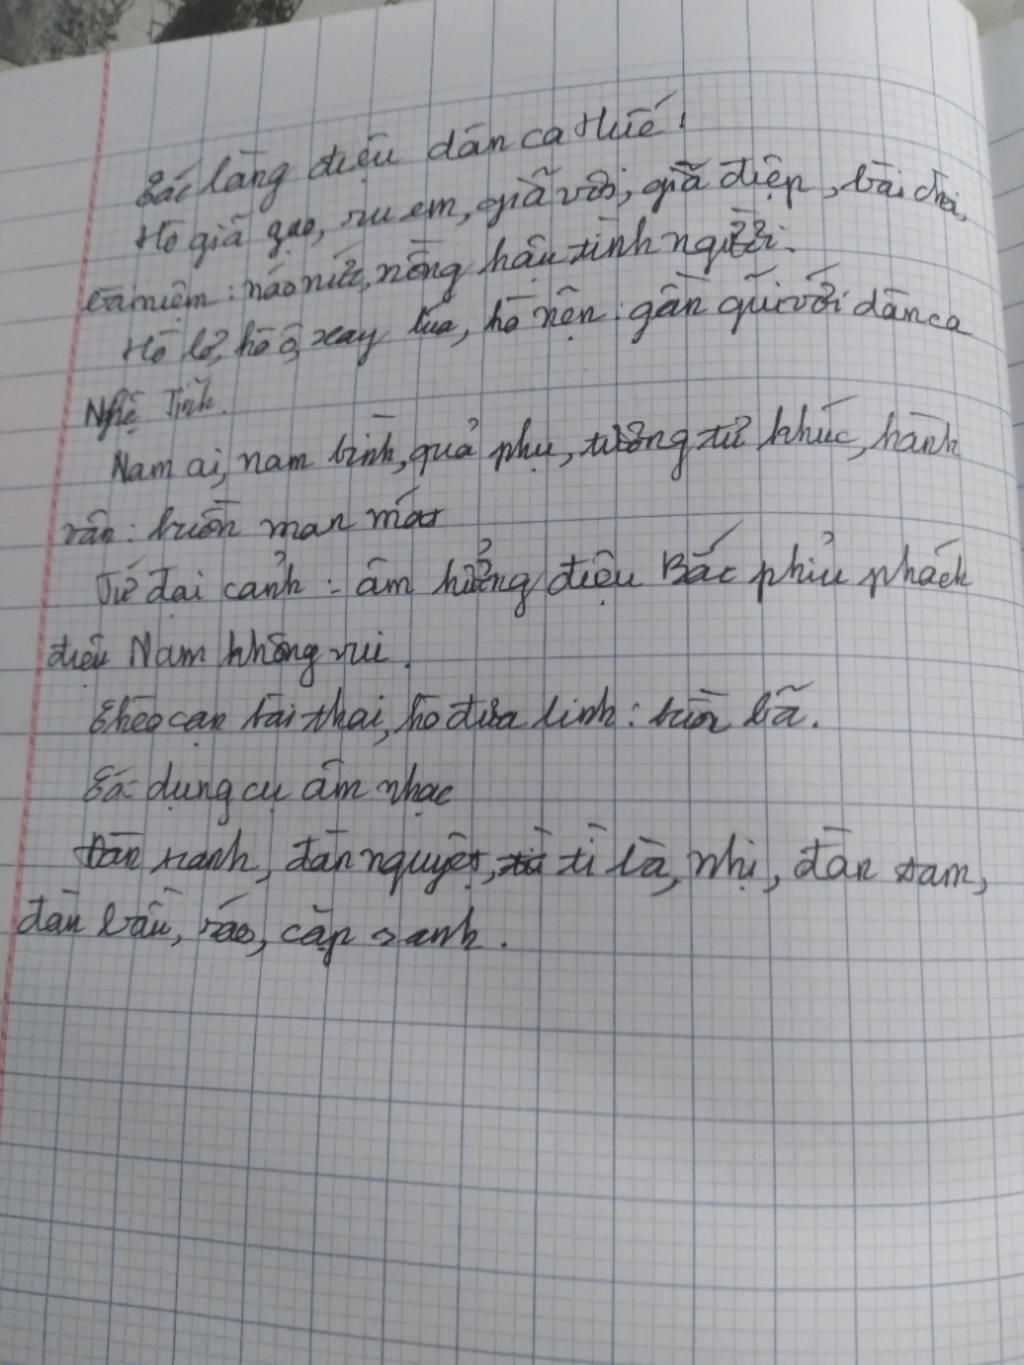 Các làng điệu dân ca Huế:
Hò giã gạo, ru em, giã vôi, giã điệp, bài chòi,
bài niệm: náo nức, nồng hậu tình người.
Hò lơ, hò ô, xay lúa, hò nện: gần gũi với dân ca
Nghệ Tĩnh.
Nam ai, nam bình, quả phụ, tương tư khúc, hành
vân: buồn man mác
Tứ đại cảnh: âm hưởng điệu Bắc phiu phách
điệu Nam không vui.
Chèo cạn bài thai, hò đưa linh: buồn bã.
Các dụng cụ âm nhạc
Đàn tranh, đàn nguyệt, tì bà, nhị, đàn tam,
đàn bầu, sáo, cặp sanh.